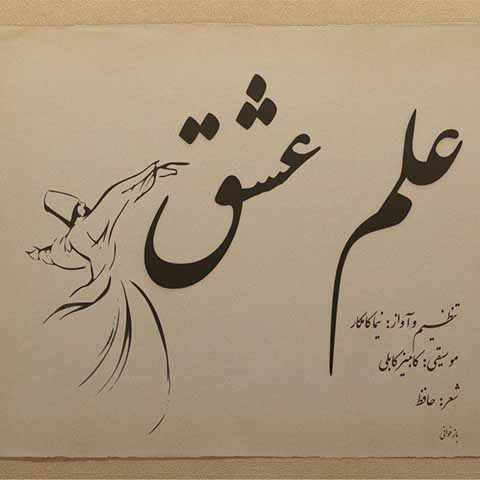 علم عشق
تنظیم و آواز: نیما کامکار
موسیقی: کامبیز کابلی
شعر: حافظ
بازخوانی